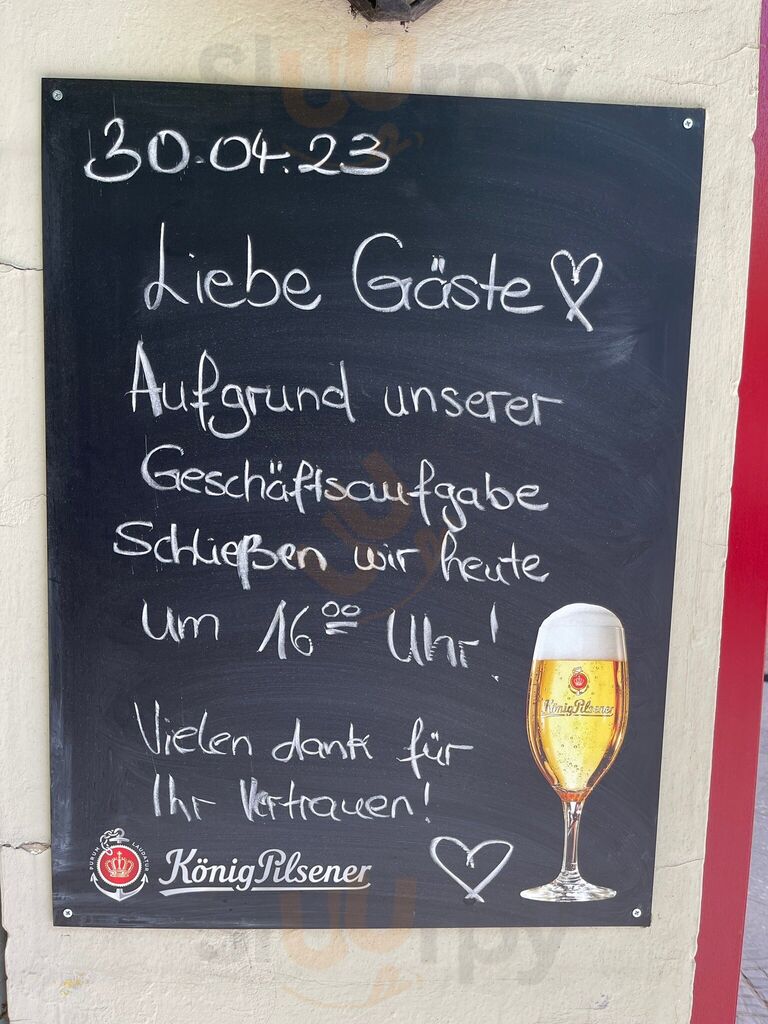 sluurpy
30.04.23
Liebe Gäste
Aufgrund unserer
Geschäftsaufgabe
Schließen wir heute
um 16⁰⁰ Uhr!
König Pilsener
Vielen dank für
Ihr Vertrauen!
PURUM LAUDATUR
König Pilsener
sluurpy